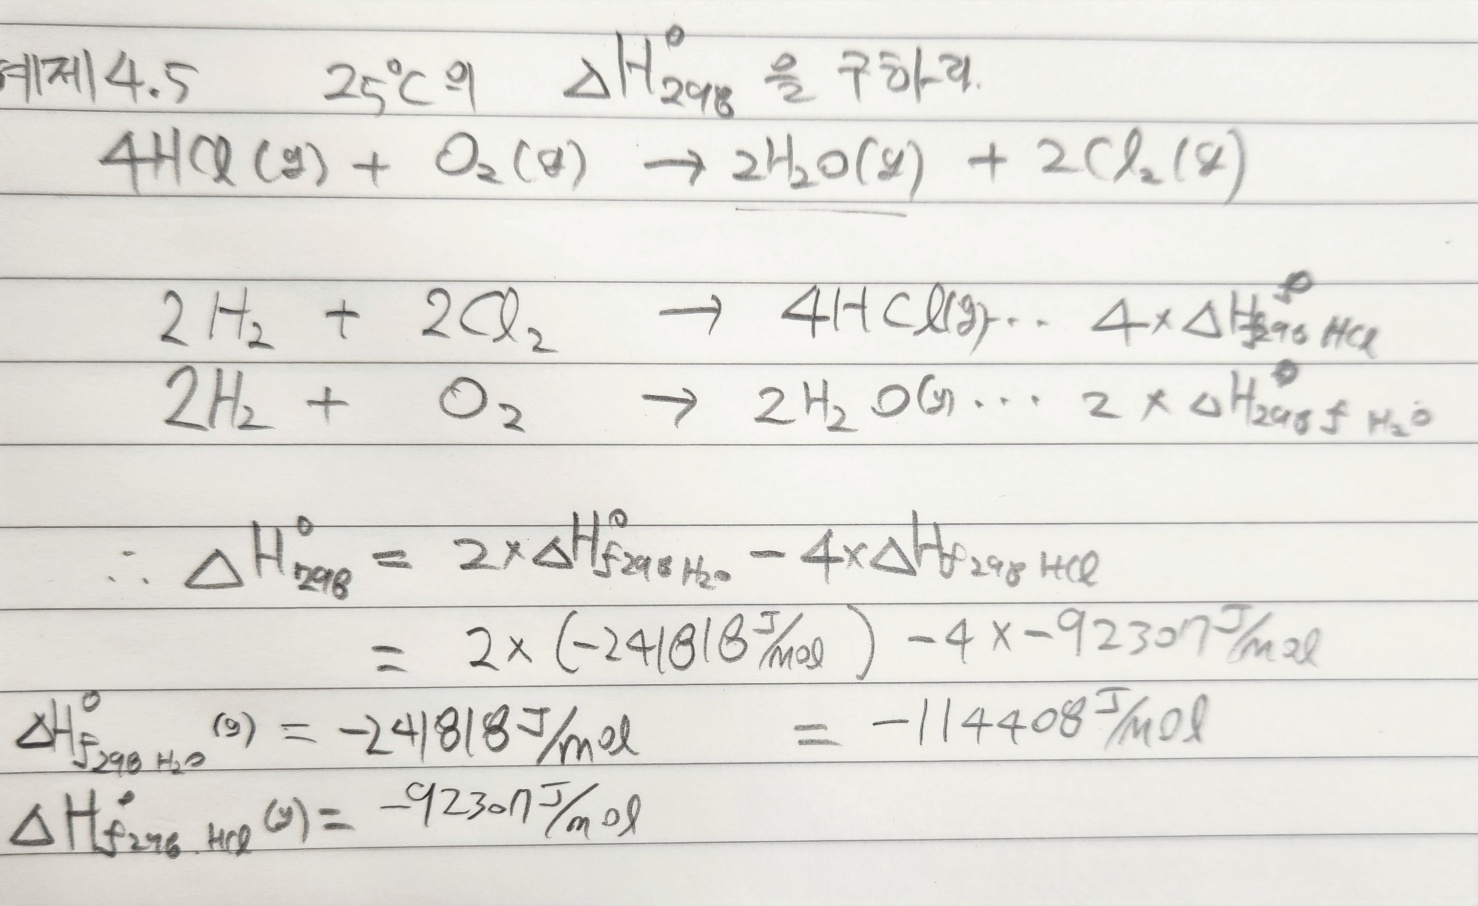 예제 4.5 25°C의 ΔH°298을 구하라.
4HCl(g) + O2(g) → 2H2O(g) + 2Cl2(g)
2H2 + 2Cl2 → 4HCl(g)... 4×ΔH°f298 HCl
2H2 + O2 → 2H2O(g)... 2×ΔH°298f H2O
∴ ΔH°298 = 2×ΔH°f298 H2O - 4×ΔHf298 HCl
= 2×(-241818 J/mol) - 4×-92307 J/mol
ΔH°f298 H2O (g) = -241818 J/mol = -114408 J/mol
ΔH°f298 HCl (g) = -92307 J/mol